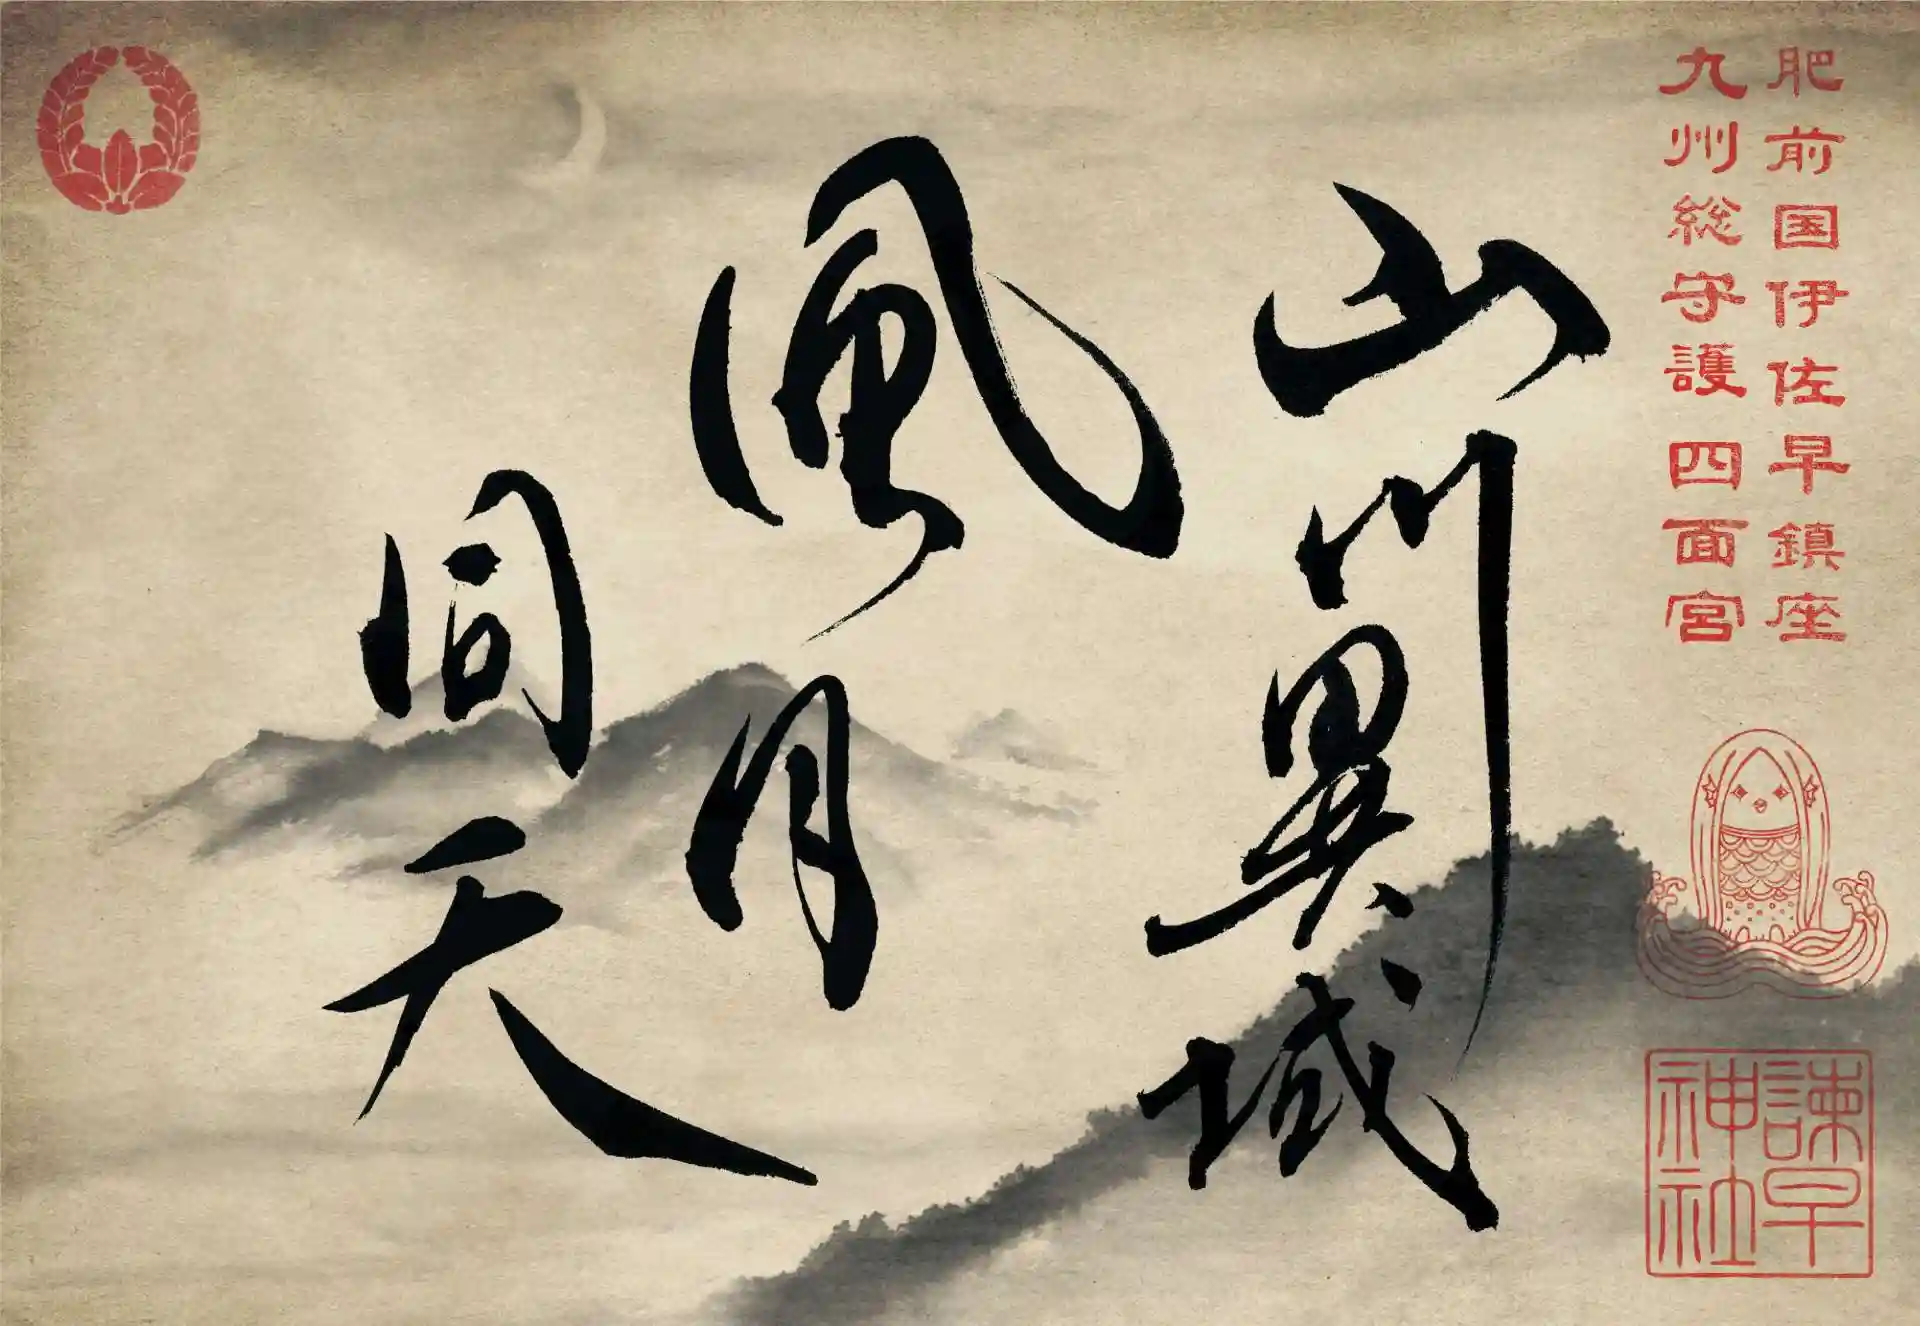 肥前国伊佐早鎮座
九州総守護四面宮
山川異域
風月同天
諫早
神社